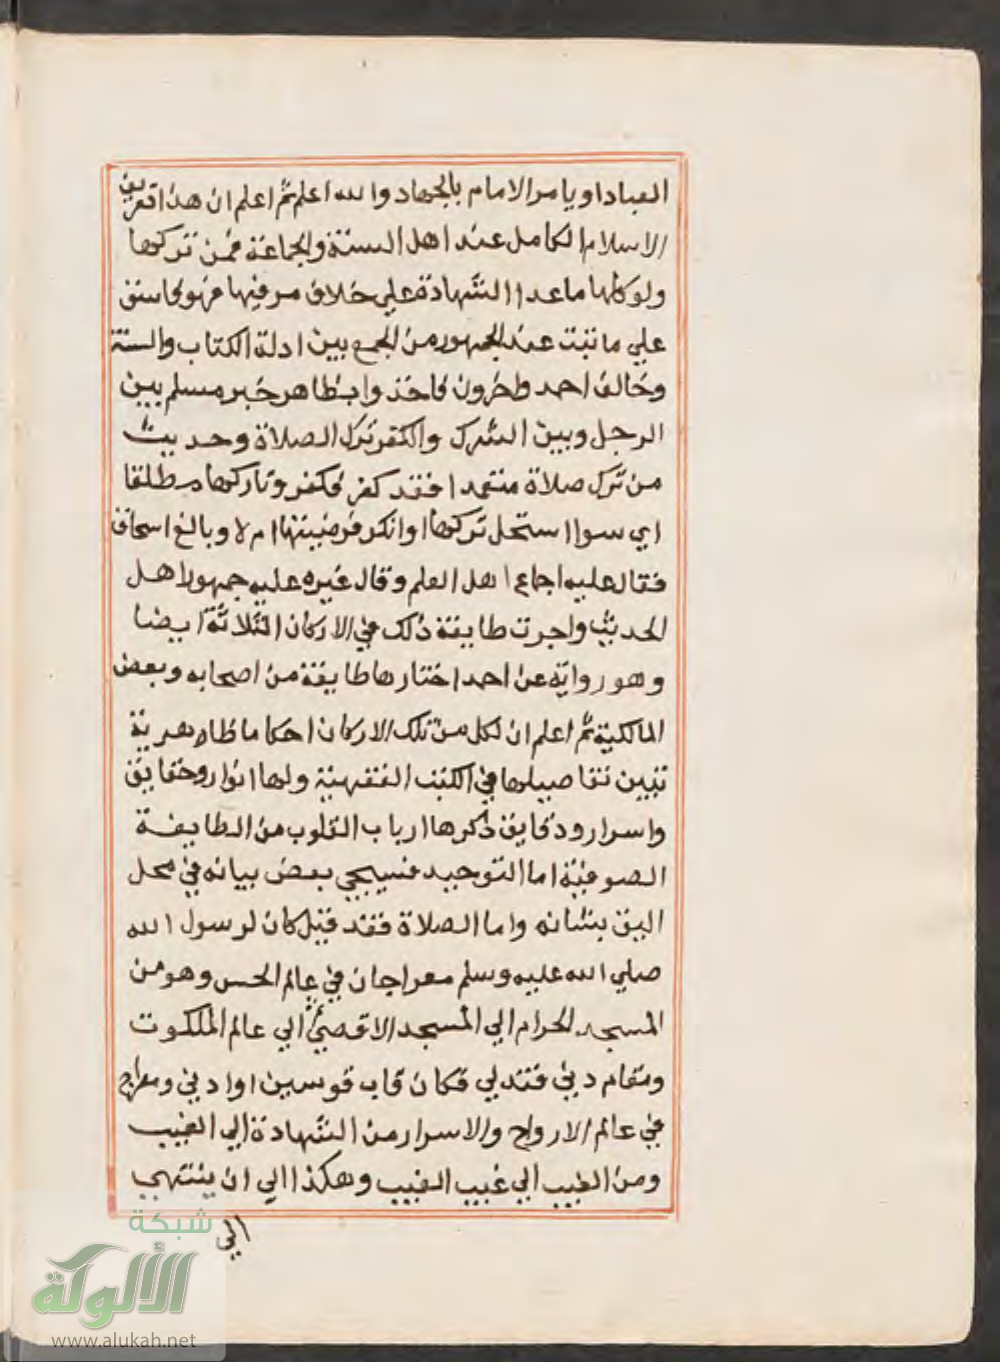 العباد او يامر الامام بالجهاد والله اعلم ثم اعلم ان هذا تعريف
الاسلام الكامل عند اهل السنة والجماعة فمن تركها
ولو كلها ما عدا الشهادة علي خلاف مر فيها فهو فاسق
علي ما ثبت عند الجمهور من الجمع بين ادلة الكتاب والسنة
وخالف احمد واخرون فاخذوا بظاهر خبر مسلم بين
الرجل وبين الشرك والكفر ترك الصلاة وحديث
من ترك صلاة متعمدا فقد كفر فكفروا تاركها مطلقا
اي سوا استحل تركها او انكر فرضيتها ام لا وبالغ اسحاق
فقال عليه اجماع اهل العلم وقال غيره عليه جمهور اهل
الحديث واجرت طايفة ذلك في الاركان الثلاثة ايضا
وهو رواية عن احمد اختارها طايفة من اصحابه وبعض
المالكية ثم اعلم ان لكل من تلك الاركان احكاما ظاهرية
تبين تفاصيلها في الكتب الفقهية ولها انوار وحقايق
واسرار ودقايق ذكرها ارباب القلوب من الطايفة
الصوفية اما التوحيد فسيجي بعض بيانه في محل
اليق بشانه واما الصلاة فقد قيل كان لرسول الله
صلي الله عليه وسلم معراجان في عالم الحس وهو من
المسجد الحرام الي المسجد الاقصي ثم الي عالم الملكوت
ومقام دني فتدلي فكان قاب قوسين او ادني ومعراج
في عالم الارواح والاسرار من الشهادة الي الغيب
ومن الغيب الي غيب الغيب وهكذا الي ان ينتهي
الي
شبكة
الألوكة
www.alukah.net